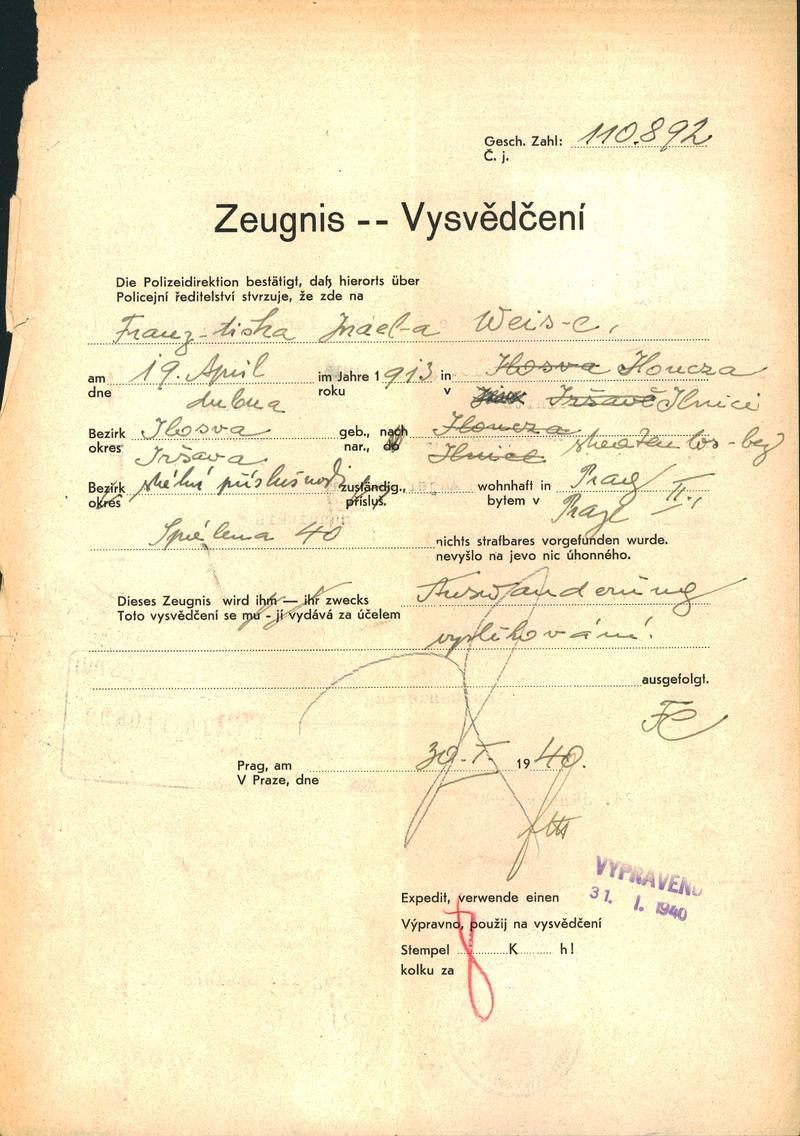 Gesch. Zahl: 110.892
Č. j.
Zeugnis -- Vysvědčení
Die Polizeidirektion bestätigt, daß hierorts über
Policejní ředitelství stvrzuje, že zde na
Franz-tiska Weis-e,
am 19. April im Jahre 1913 in Ilosva Iloncza
dne dubna roku v Iršavě Ilnici
Bezirk Ilosva geb., nach Iloncza staatenlos - bez
okres Iršava nar., do Ilnice
Bezirk státní příslušnosti zuständig., wohnhaft in Prag II.,
okres přísluš. bytem v Praze
Spálena 40 nichts strafbares vorgefunden wurde.
nevyšlo na jevo nic úhonného.
Dieses Zeugnis wird ihm — ihr zwecks Auswanderung
Toto vysvědčení se mu - jí vydává za účelem
vystěhování.
ausgefolgt.
Prag, am 30. I. 1940.
V Praze, dne
VYPRAVENO
31. I. 1940
Expedit, verwende einen
Výpravno, použij na vysvědčení
Stempel K h!
kolku za